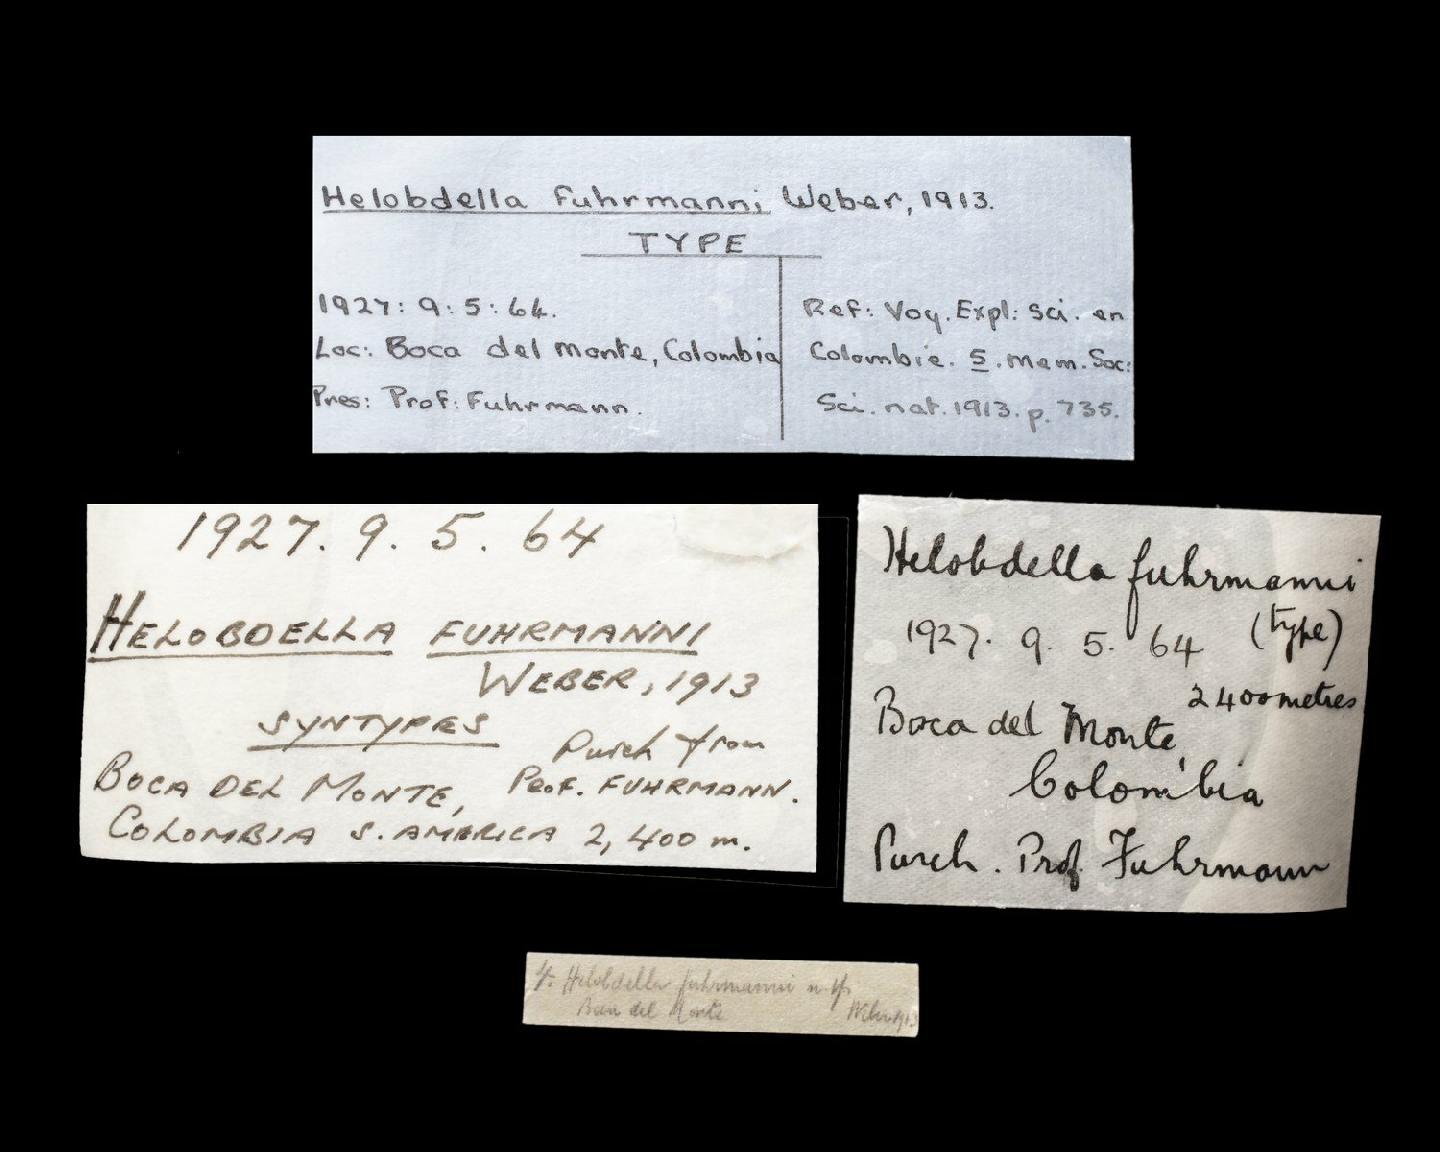 Helobdella Fuhrmanni Weber, 1913.
TYPE
1927: 9: 5: 64.
Loc: Boca del Monte, Colombia
Pres: Prof: Fuhrmann.
Ref: Voy. Expl: Sci. en
Colombie. 5. Mem. Soc:
Sci. nat. 1913. p. 735.
1927. 9. 5. 64
HELOBDELLA FUHRMANNI
WEBER, 1913
SYNTYPES
Purch from
BOCA DEL MONTE, Prof. FUHRMANN.
COLOMBIA S. AMERICA 2,400 m.
Helobdella fuhrmanni
1927. 9. 5. 64 (type)
2400 metres
Boca del Monte,
Colombia
Purch. Prof Fuhrmann
4. Helobdella fuhrmanni n. sp.
Boca del Monte Weber 1913